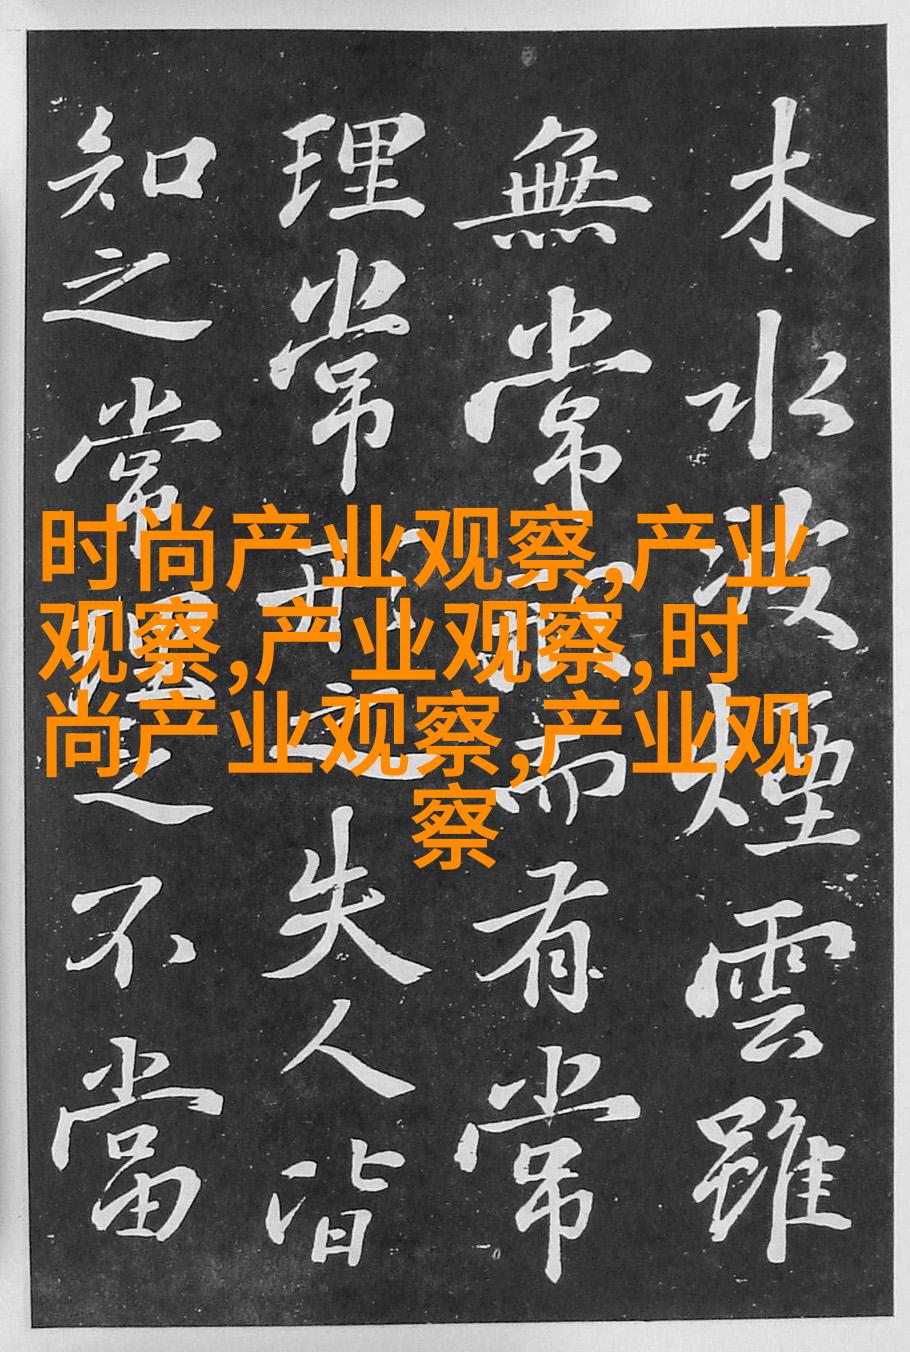 木水波煙雲雖
無常而有常
理常形之失人皆
知之常理之不當
时尚产业观察,产业
观察,产业观察,时
尚产业观察,产业观
察